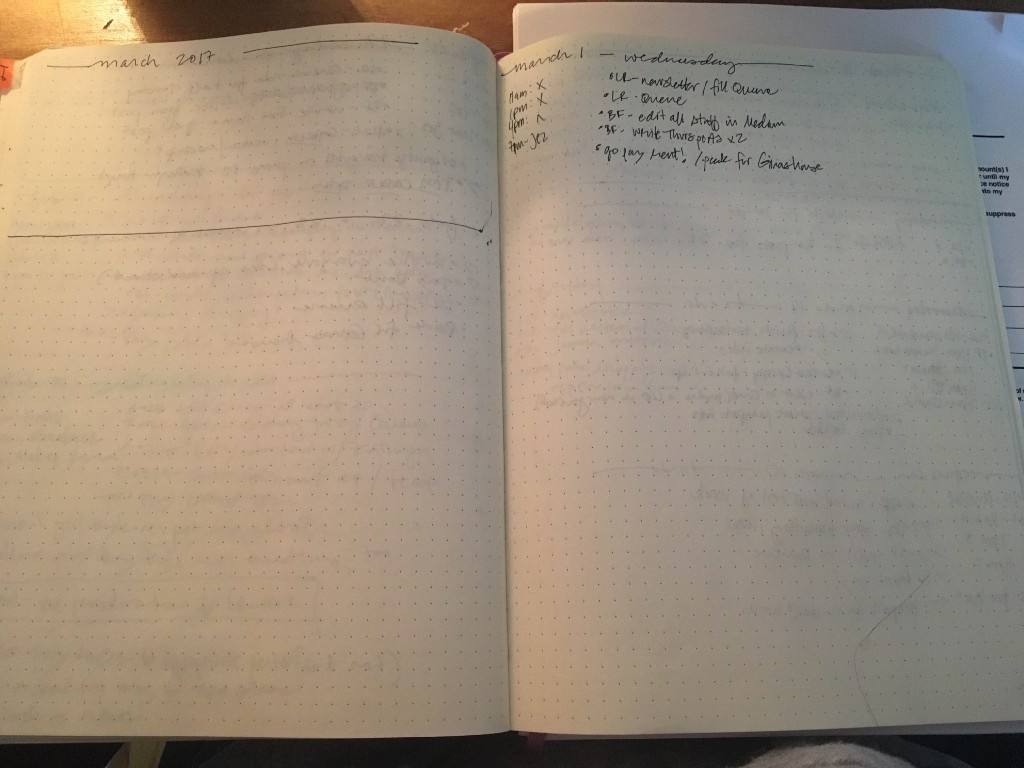 march 2017
march 1 - wednesday
11am: X
1pm: X
4pm:
7pm-
• LR - newsletter / fill Queue
• LR - Queue
• BF - edit all stuff in Medium
• BF - write x2
• go pay rent! / pack for
ount(s) I
until my
ce notice
to my
suppress